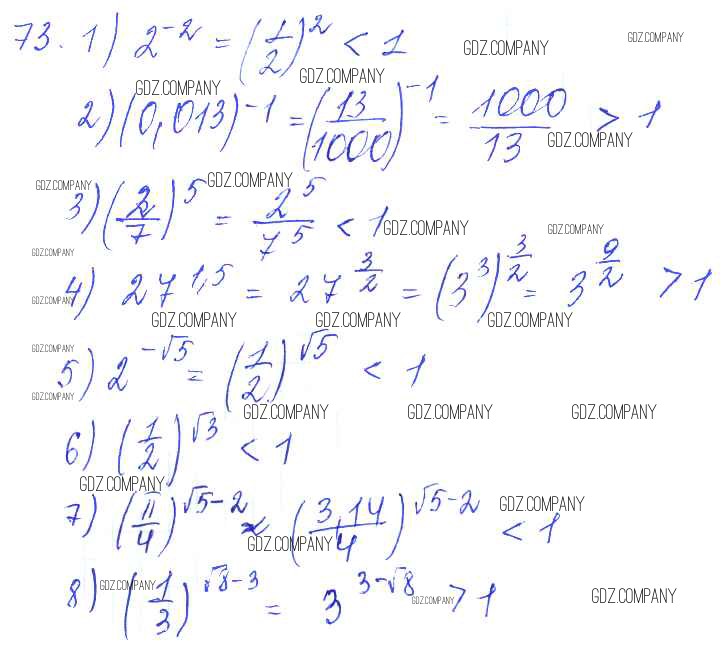 73. 1) 2^{-2} = (1/2)^2 < 1
GDZ.COMPANY GDZ.COMPANY
GDZ.COMPANY GDZ.COMPANY
2) (0,013)^{-1} = (13/1000)^{-1} = 1000/13 > 1
GDZ.COMPANY
GDZ.COMPANY GDZ.COMPANY
3) (2/7)^5 = 2^5/7^5 < 1
GDZ.COMPANY GDZ.COMPANY
GDZ.COMPANY
4) 27^{1,5} = 27^{3/2} = (3^3)^{3/2} = 3^{9/2} > 1
GDZ.COMPANY
GDZ.COMPANY GDZ.COMPANY GDZ.COMPANY
GDZ.COMPANY
5) 2^{-√5} = (1/2)^{√5} < 1
GDZ.COMPANY
GDZ.COMPANY GDZ.COMPANY GDZ.COMPANY
6) (1/2)^{√3} < 1
GDZ.COMPANY
7) (π/4)^{√5-2} ≈ (3,14/4)^{√5-2} < 1
GDZ.COMPANY
GDZ.COMPANY
8) (1/3)^{√8-3} = 3^{3-√8} > 1
GDZ.COMPANY GDZ.COMPANY GDZ.COMPANY